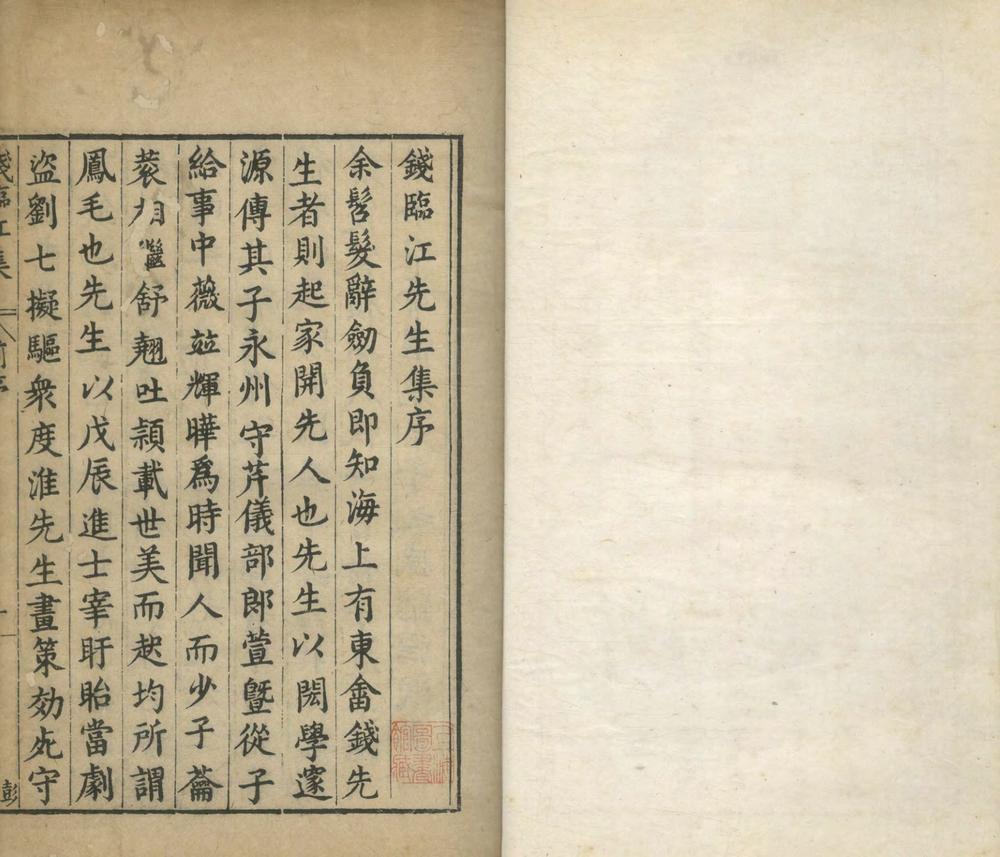 錢臨江先生集序
余髫髮辭劬負即知海上有東畬錢先
生者則起家開先人也先生以閎學邃
源傳其子永州守芹儀部郎萱暨從子
給事中薇竝輝曄爲時聞人而少子蕭
蓑相繼舒翹吐頴載世美而起均所謂
鳳毛也先生以戊辰進士宰盱眙當劇
盜劉七擬驅衆度淮先生畫策効死守
錢臨江集 前序 一 彭